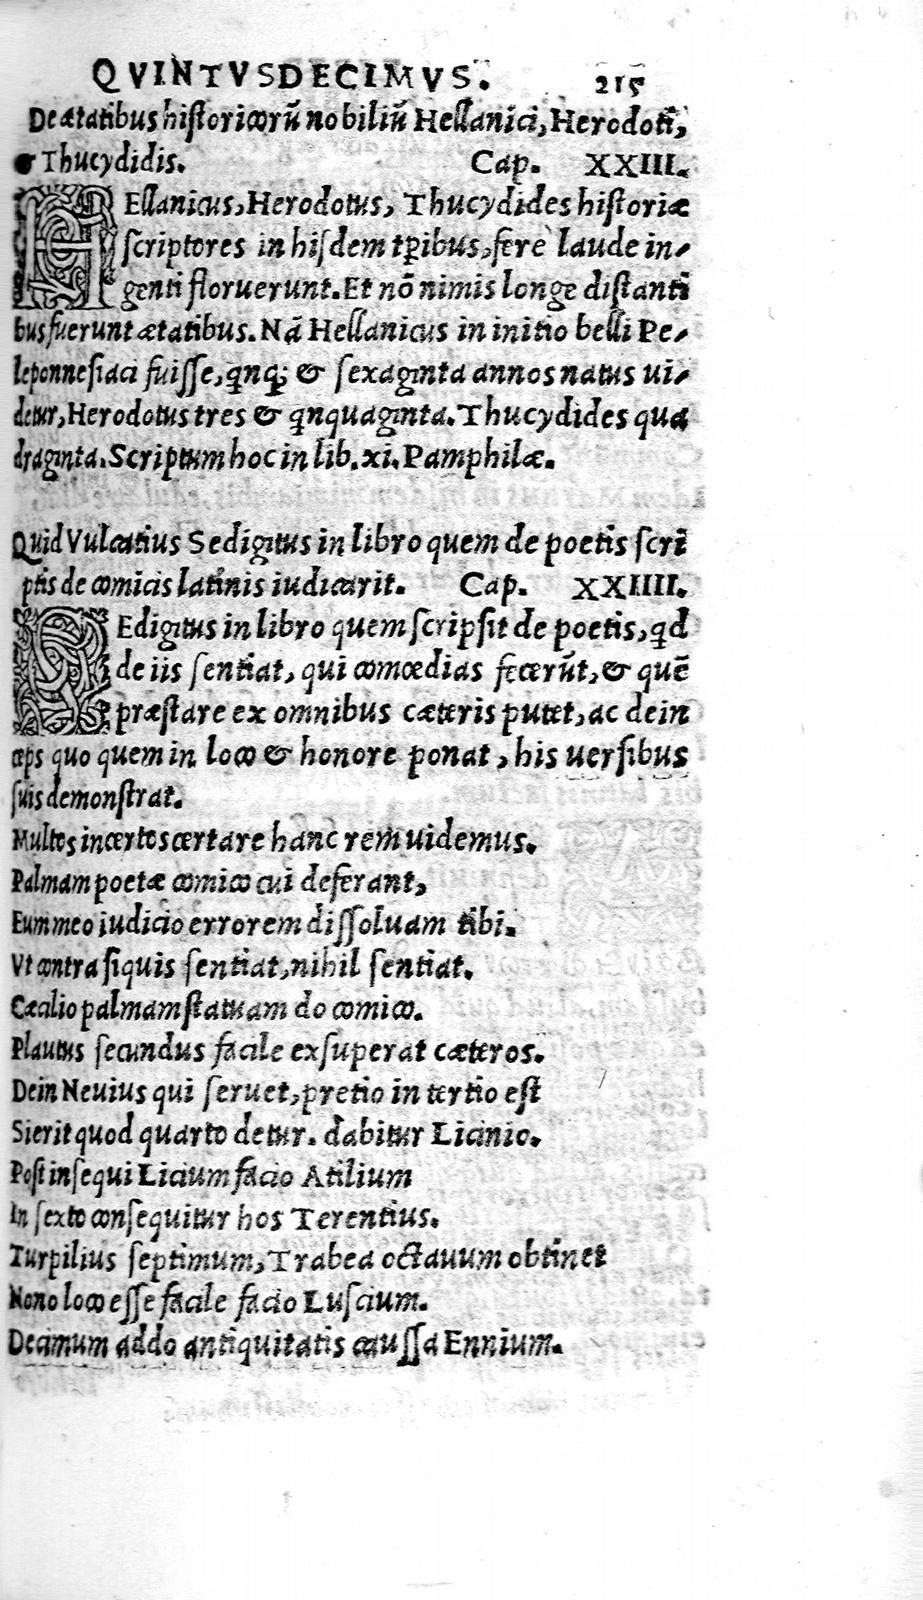 QVINTVSDECIMVS. 215
De ætatibus historicorũ nobiliũ Hellanici, Herodoti,
& Thucydidis. Cap. XXIII.
HEllanicus, Herodotus, Thucydides historiæ
scriptores in hisdem tꝑibus, ferè laude in-
genti floruerunt. Et nõ nimis longe distanti
bus fuerunt ætatibus. Nã Hellanicus in initio belli Pe-
leponnesiaci fuisse, qnq; & sexaginta annos natus ui-
detur, Herodotus tres & qnquaginta. Thucydides qua
draginta. Scriptum hoc in lib. xi. Pamphilæ.
Quid Vulcatius Sedigitus in libro quem de poetis scri
ptis de comicis latinis iudicarit. Cap. XXIIII.
SEdigitus in libro quem scripsit de poetis, qd
de iis sentiat, qui comœdias fecerũt, & quẽ
præstare ex omnibus cæteris putet, ac dein
ceps quo quem in loco & honore ponat, his uersibus
suis demonstrat.
Multos incertos certare hanc rem uidemus.
Palmam poetæ comico cui deferant,
Eum meo iudicio errorem dissoluam tibi.
Vt contra siquis sentiat, nihil sentiat.
Cæcilio palmam statuam do comico.
Plautus secundus facile exsuperat cæteros.
Dein Neuius qui seruet, pretio in tertio est
Sierit quod quarto detur. dabitur Licinio.
Post insequi Licium facio Atilium
In sexto consequitur hos Terentius.
Turpilius septimum, Trabea octauum obtinet
Nono loco esse facile facio Luscium.
Decimum addo antiquitatis caussa Ennium.